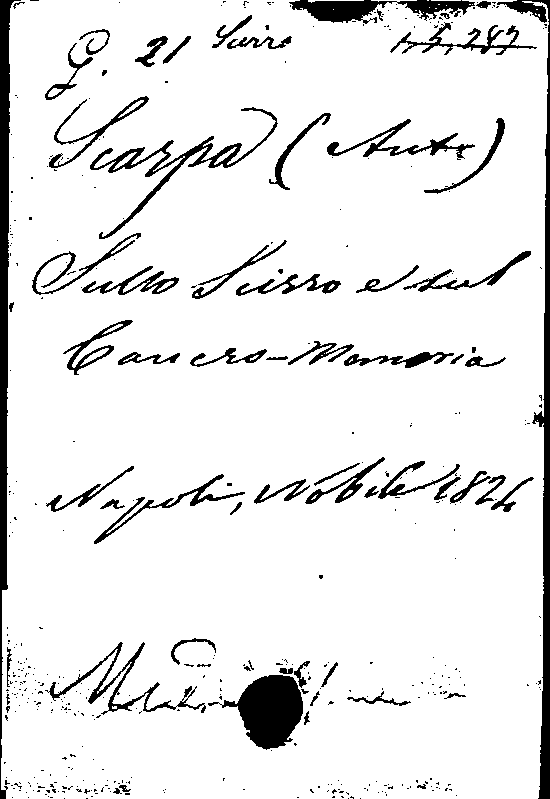 G. 21 Scirro 1,5,287
Scarpa (Anto)
Sullo Scirro e sul
Cancro-Memoria
Napoli, Nobile 1824